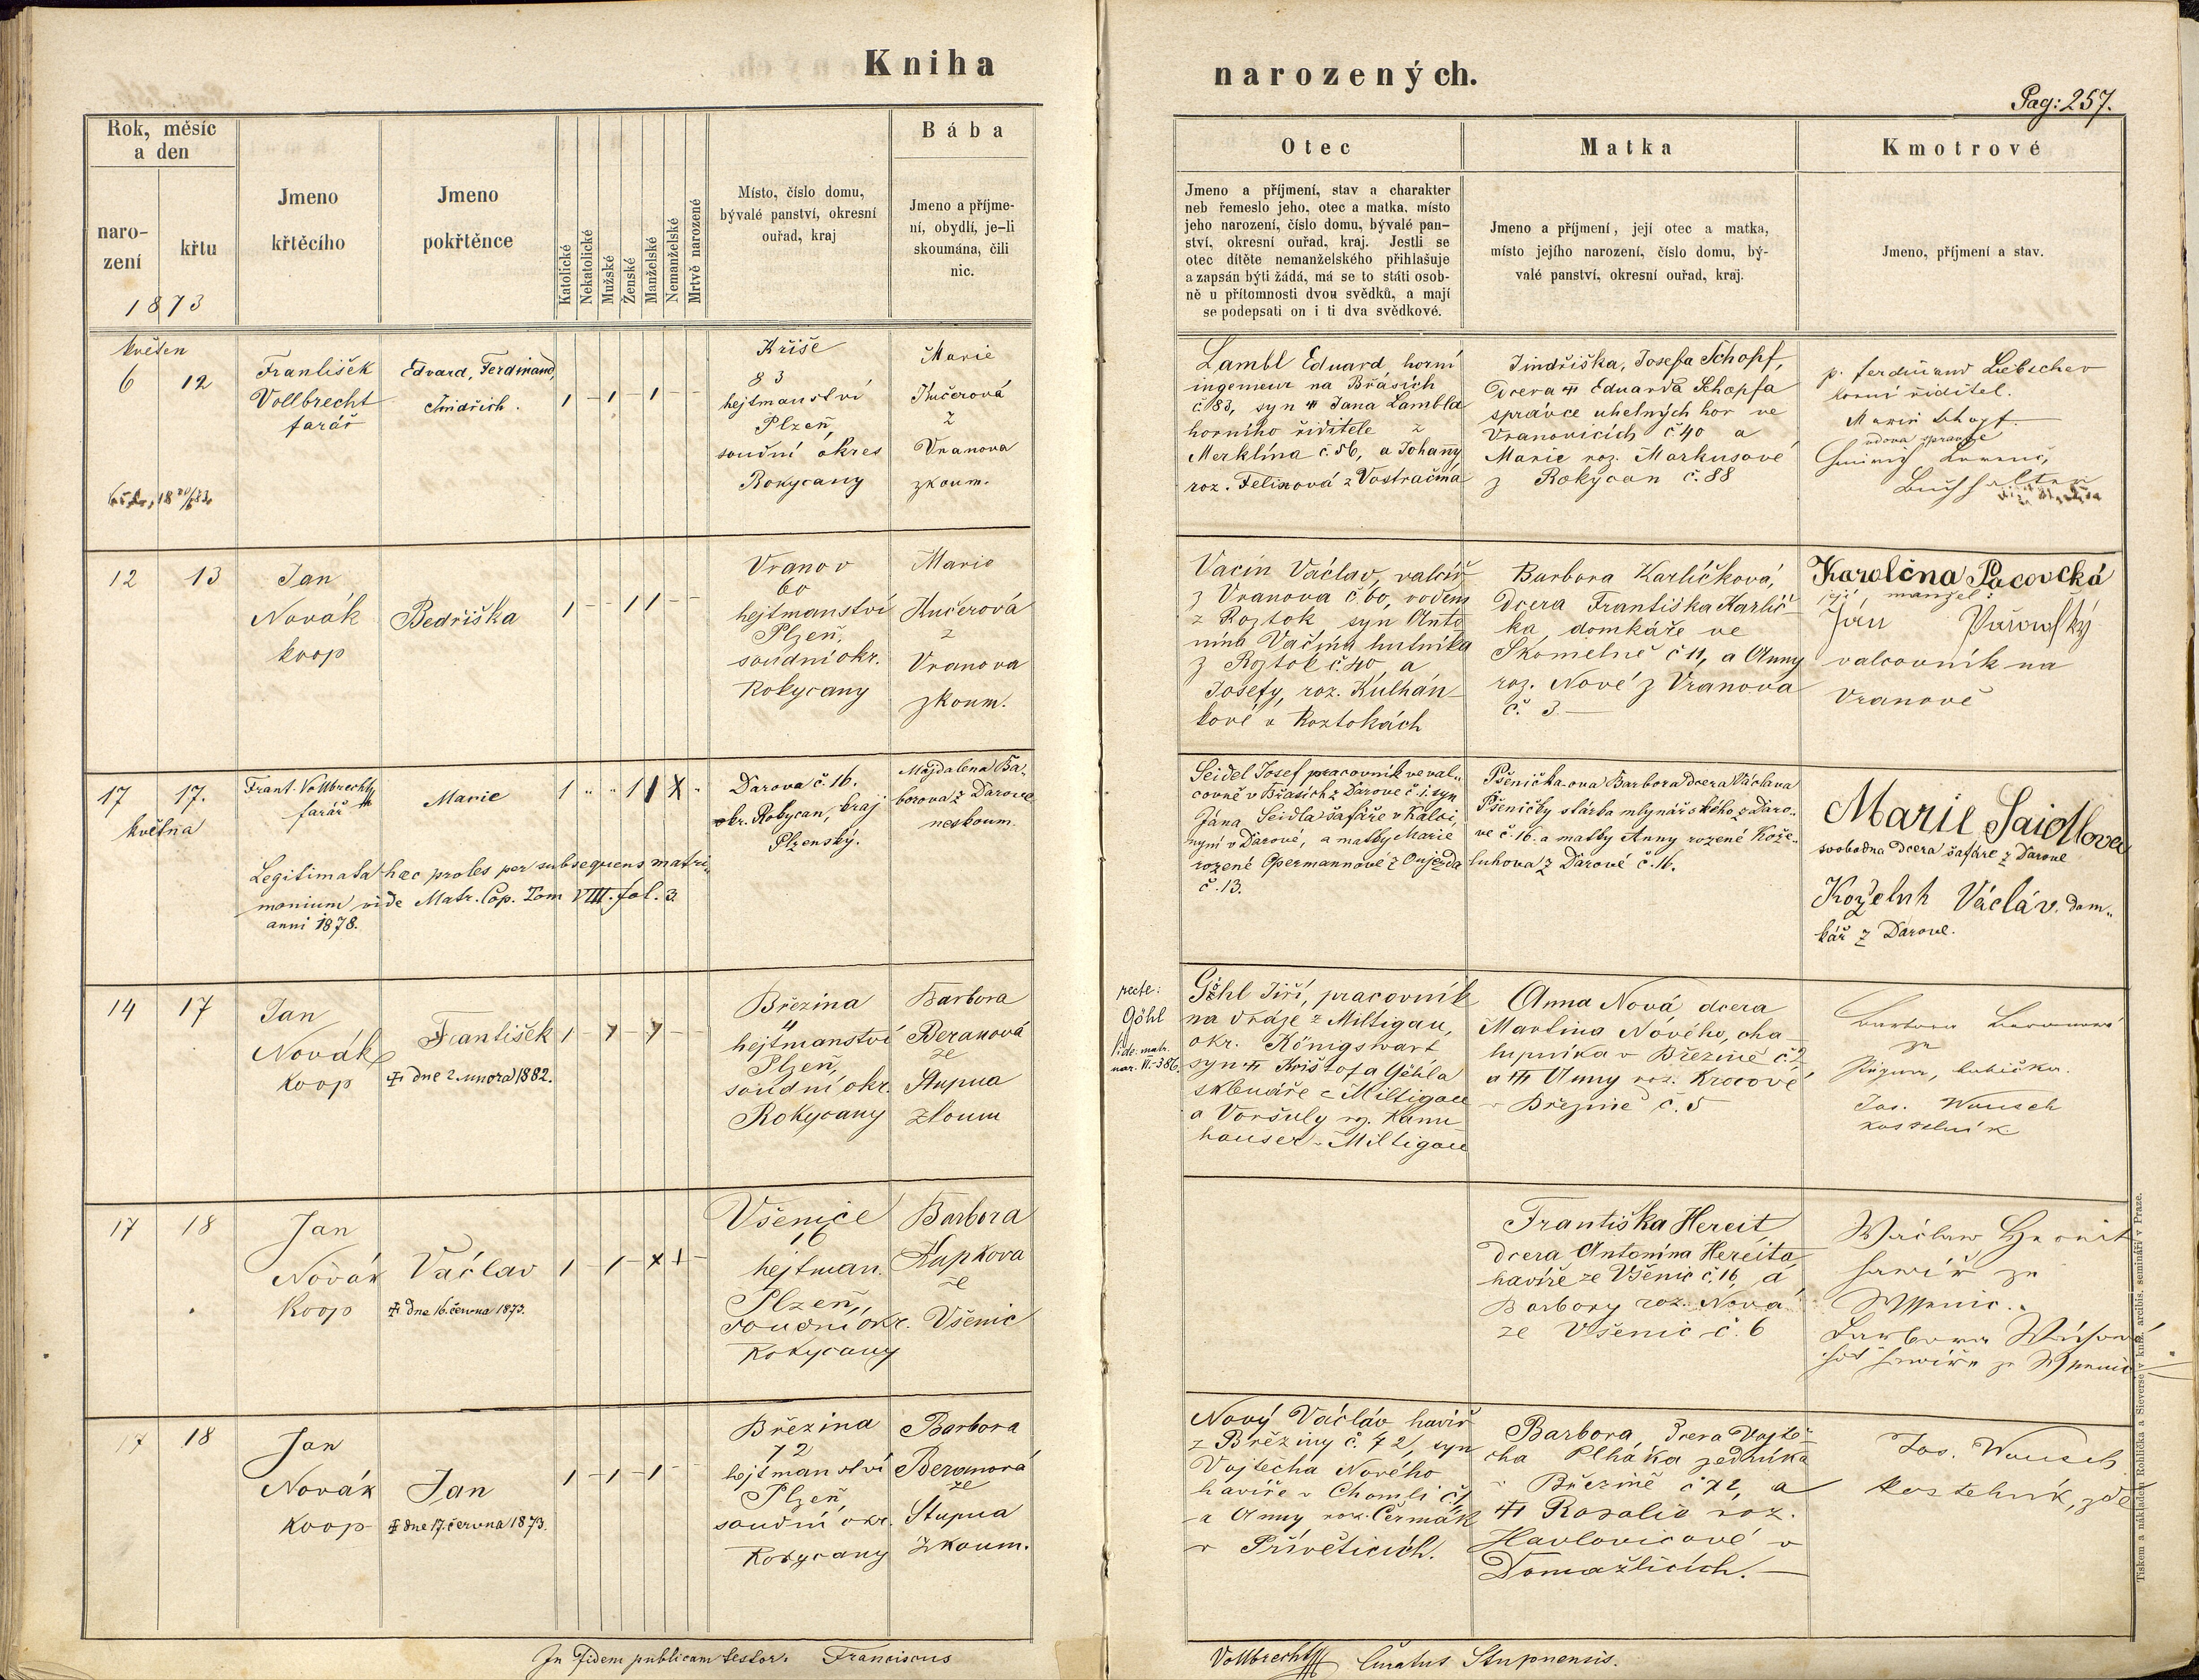 Kniha
narozených.
Pag: 257.
Rok, měsíc
a den
naro-
zení
křtu
1873
Jmeno
křtěcího
Jmeno
pokřtěnce
Katolické
Nekatolické
Mužské
Ženské
Manželské
Nemanželské
Mrtvě narozené
Místo, číslo domu,
bývalé panství, okresní
ouřad, kraj
Bába
Jmeno a příjme-
ní, obydlí, je-li
skoumána, čili
nic.
Otec
Jmeno a příjmení, stav a charakter
neb řemeslo jeho, otec a matka, místo
jeho narození, číslo domu, bývalé pan-
ství, okresní ouřad, kraj. Jestli se
otec dítěte nemanželského přihlašuje
a zapsán býti žádá, má se to státi osob-
ně u přítomnosti dvou svědků, a mají
se podepsati on i ti dva svědkové.
Matka
Jmeno a příjmení, její otec a matka,
místo jejího narození, číslo domu, bý-
valé panství, okresní ouřad, kraj.
Kmotrové
Jmeno, příjmení a stav.
květen
6 12
František
Vollbrecht
farář
Edvard, Ferdinand,
Jindřich.
1 - 1 - 1 - -
Kříše
83
hejtmanství
Plzeň,
soudní okres
Rokycany
Marie
Kučerová
z
Vranova
zkoum.
Lambl Eduard, horní
ingenieur na Břasích
č 83, syn Jana Lambla
horního řiditele z
Merklína č. 56, a Johany
roz. Felixová z Vostračína
Jindřiška, Josefa Schopf,
Dcera Eduarda Schopfa
správce uhelných hor ve
Vranovicích č 40 a
Marie roz. Markusové
z Rokycan č. 88
p. Ferdinand Liebscher
horní řiditel.
Marie Schopf
vdova správce
12 13
Jan
Novák
koop
Bedřiška
1 - - 1 1 - -
Vranov
60
hejtmanství
Plzeň,
soudní okr.
Rokycany
Marie
Kučerová
z
Vranova
zkoum.
Vacín Václav, valcíř
z Vranova č. 60, rodem
z Roztok syn Anto
nína Vačína hutníka
z Roztok č 40, a
Josefy, roz. Kulhán-
kové v Roztokách
Barbora Karlíčková,
dcera Františka Karlíč
ka, domkáře ve
Skomelně č 11, a Anny
roz. Nové z Vranova
č. 3.
Karolína Pacovcká
její manžel:
Ján
valcovník na
Vranově
17 17.
května
Frant. Vollbrecht
farář
Marie
Darova č. 16.
okr. Rokycan, kraj
Plzenský.
Majdalena Ba-
borova z Darove
neskoum.
Legitimata haec proles per subsequens matri-
monium vide Matr. Cop. Tom VIII. fol. 3.
anni 1878.
Seidel Josef pracovník ve val-
covně v Břasích z Darové č 1. syn
Jána Seidla šafáře v Kálci,
nyní v Darové, a matky Marie
rozené Opermannové z Oujezda
č. 13.
Pšeničkova Barbora Dcera Václava
Pšeničky stárka mlynářského z Daro-
vé č. 16. a matky Anny rozené Kože-
luhova z Darové č. 16.
Marie Saidlova
svobodna dcera šafáre z Darové
Koželuh Václáv. dom-
kář z Darove.
14 17
Jan
Novák
koop
František
dne 2. unora 1882.
Březina
4
hejtmanství
Plzeň,
soudní okr.
Rokycany
Barbora
Beranová
ze
Stupna
zkoum
recte:
Göhl
vide: matr.
nar. VI.-386.
Göhl Jiří, pracovník
na dráze z Miltigau,
okr. Königswart
syn Krištofa Göhla
sklenáře z Miltigau
a Voršuly roz. Kann
hauser z Miltigau
Anna Nová, dcera
Martina Nového, cha
lupníka v Březině č 2,
a Anny roz. Krocové
v Březině č. 5
Barbora Beranová
ze
Jos. Wousch
kostelník
17 18
Jan
Novák
Koop
Václav
dne 16. června 1873.
Všenice
16
hejtman.
Plzeň,
soudní okr.
Rokycany
Barbora
Kupkova
ze
Všenic
Františka Hereit
dcera Antonína Hereita
havíře ze Všenic č. 16, a
Barbory roz. Nová
ze Všenic č. 6
17 18
Jan
Novák
Koop
Jan
dne 17. června 1873.
1 - 1 - 1 - -
Březina
72
hejtmanství
Plzeň,
soudní okr.
Rokycany
Barbora
Beranová
ze
Stupna
zkoum.
Nový Václáv havíř
z Březiny č. 72, syn
Vojtěcha Nového
havíře v Chomli č. 1,
a Anny roz. Čermák
v Přívěticích.
Barbora, Dcera Vojtě-
cha Plháka zedníka
v Březině č 72, a
Rosalie roz.
Havlovicové v
Domažlicích.
Jos. Wousch
kostelník, zde
In fidem publicam testor. Franciscus
Vollbrecht Curatus Stupnensis.
Tiskem a nákladem Rohlíčka a Sieverse v kníž. arcibis. semináři v Praze.